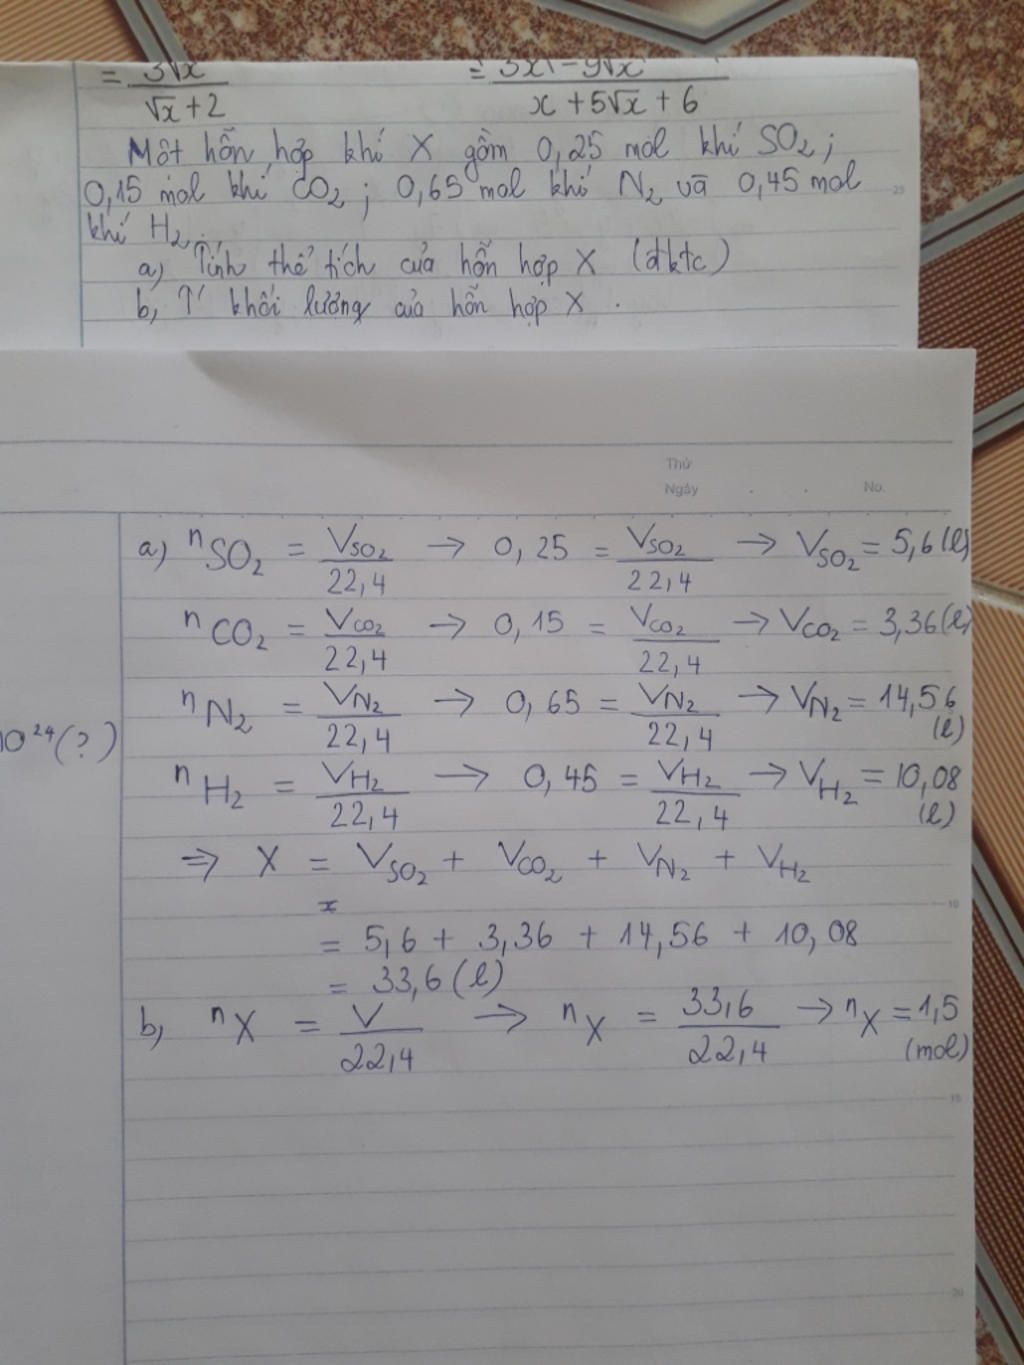 = 3√x / √x + 2
= 3x - 9√x / x + 5√x + 6
Một hỗn hợp khí X gồm 0,25 mol khí SO₂ ;
0,15 mol khí CO₂ ; 0,65 mol khí N₂ và 0,45 mol
khí H₂.
a) Tính thể tích của hỗn hợp X (đktc)
b, T' khối lượng của hỗn hợp X .
Thứ
Ngày . . No.
a) nSO₂ = VSO₂ / 22,4 → 0,25 = VSO₂ / 22,4 → VSO₂ = 5,6 (l)
nCO₂ = VCO₂ / 22,4 → 0,15 = VCO₂ / 22,4 → VCO₂ = 3,36 (l)
nN₂ = VN₂ / 22,4 → 0,65 = VN₂ / 22,4 → VN₂ = 14,56 (l)
10²⁴ (?)
nH₂ = VH₂ / 22,4 → 0,45 = VH₂ / 22,4 → VH₂ = 10,08 (l)
⇒ X = VSO₂ + VCO₂ + VN₂ + VH₂
= 5,6 + 3,36 + 14,56 + 10,08
= 33,6 (l)
b, nX = V / 22,4 → nX = 33,6 / 22,4 → nX = 1,5 (mol)